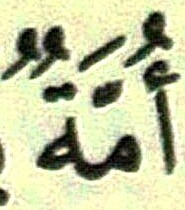 أُمَّةٌ